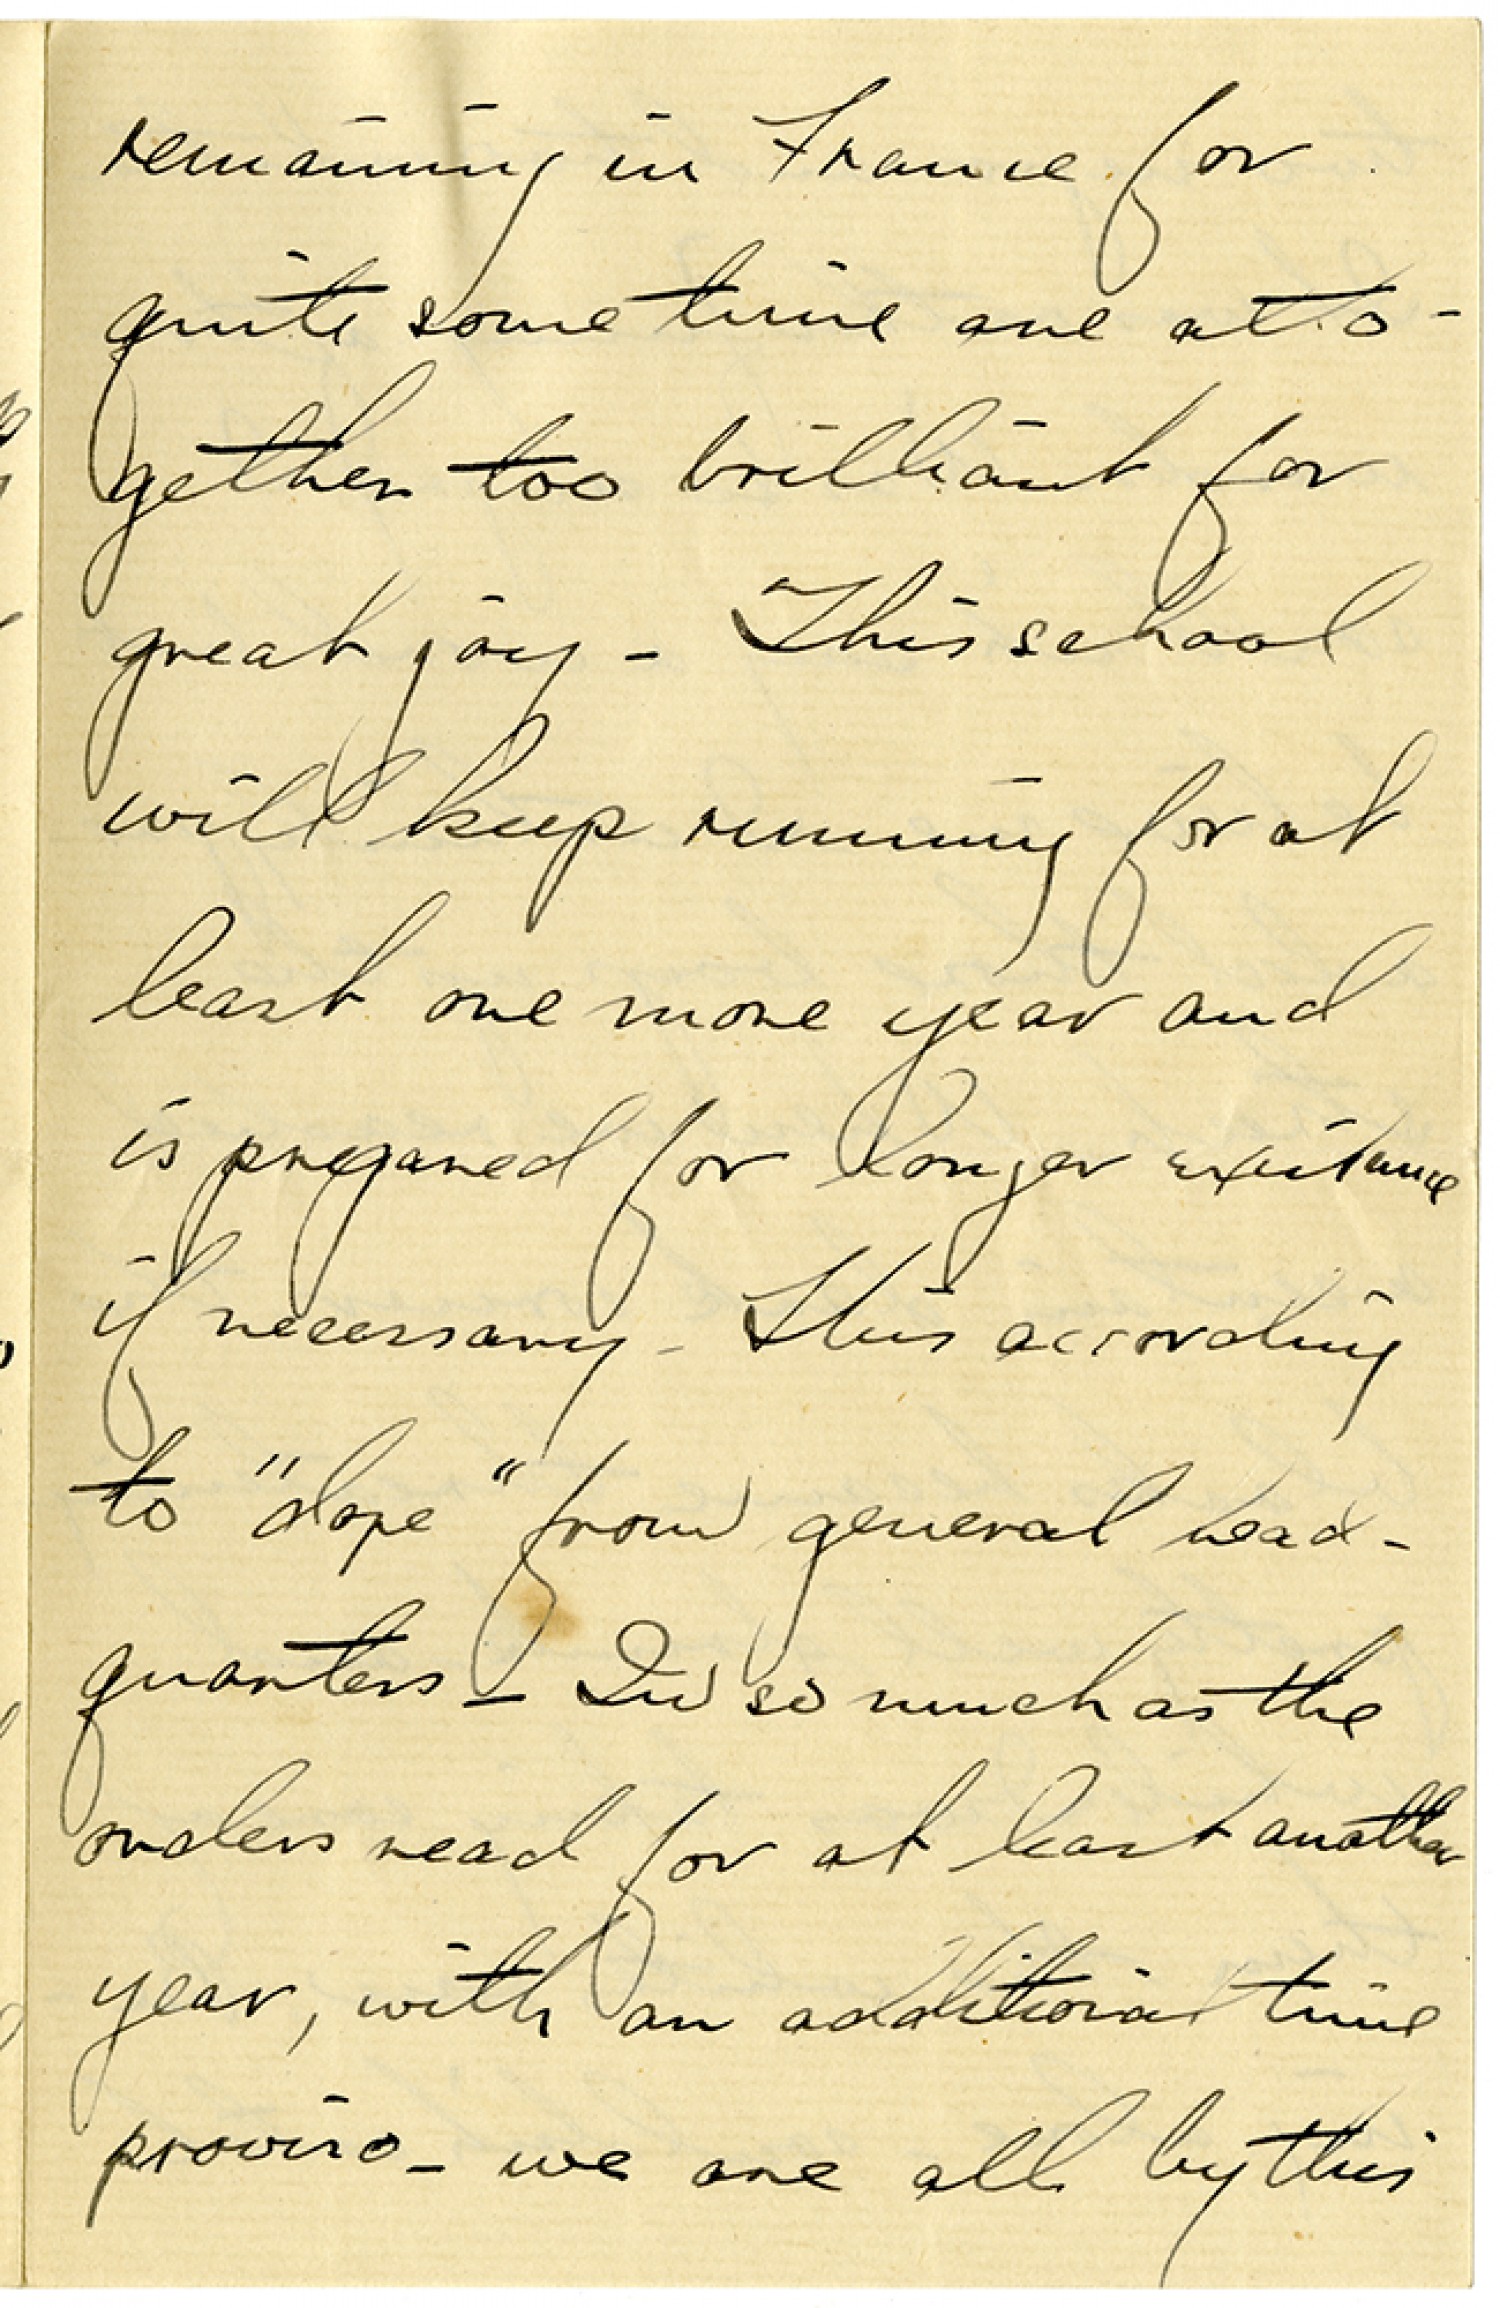 remaining in France for
quite some time are atto-
gether too brilliant for
great joy - This school
will keep running for at
least one more year and
is prepared for longer existance
if necessary - This according
to "dope" from general head-
quarters - In so much as the
orders read for at least another
year, with an additional time
proviso - we are all by this